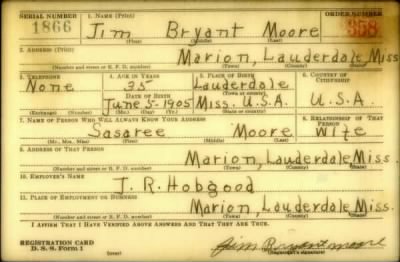 SERIAL NUMBER 1. NAME (Print) ORDER NUMBER
1866 Jim Bryant Moore 358
(First) (Middle) (Last)
2. ADDRESS (Print)
Marion, Lauderdale, Miss
(Number and street or R. F. D. number) (Town) (County) (State)
3. TELEPHONE 4. AGE IN YEARS 5. PLACE OF BIRTH 6. COUNTRY OF CITIZENSHIP
None 35 Lauderdale
DATE OF BIRTH (Town or county)
June 5-1905 Miss. U.S.A. U.S.A.
(Exchange) (Number) (Mo.) (Day) (Yr.) (State or country)
7. NAME OF PERSON WHO WILL ALWAYS KNOW YOUR ADDRESS 8. RELATIONSHIP OF THAT PERSON
Sasaree Moore Wife
(Mr., Mrs., Miss) (First) (Middle) (Last)
9. ADDRESS OF THAT PERSON
Marion, Lauderdale, Miss.
(Number and street or R. F. D. number) (Town) (County) (State)
10. EMPLOYER'S NAME
J. R. Hobgood
11. PLACE OF EMPLOYMENT OR BUSINESS
Marion, Lauderdale Miss.
(Number and street or R. F. D. number) (Town) (County) (State)
I AFFIRM THAT I HAVE VERIFIED ABOVE ANSWERS AND THAT THEY ARE TRUE.
REGISTRATION CARD
D. S. S. Form 1 (over) Jim Bryant moore
(Registrant's signature)